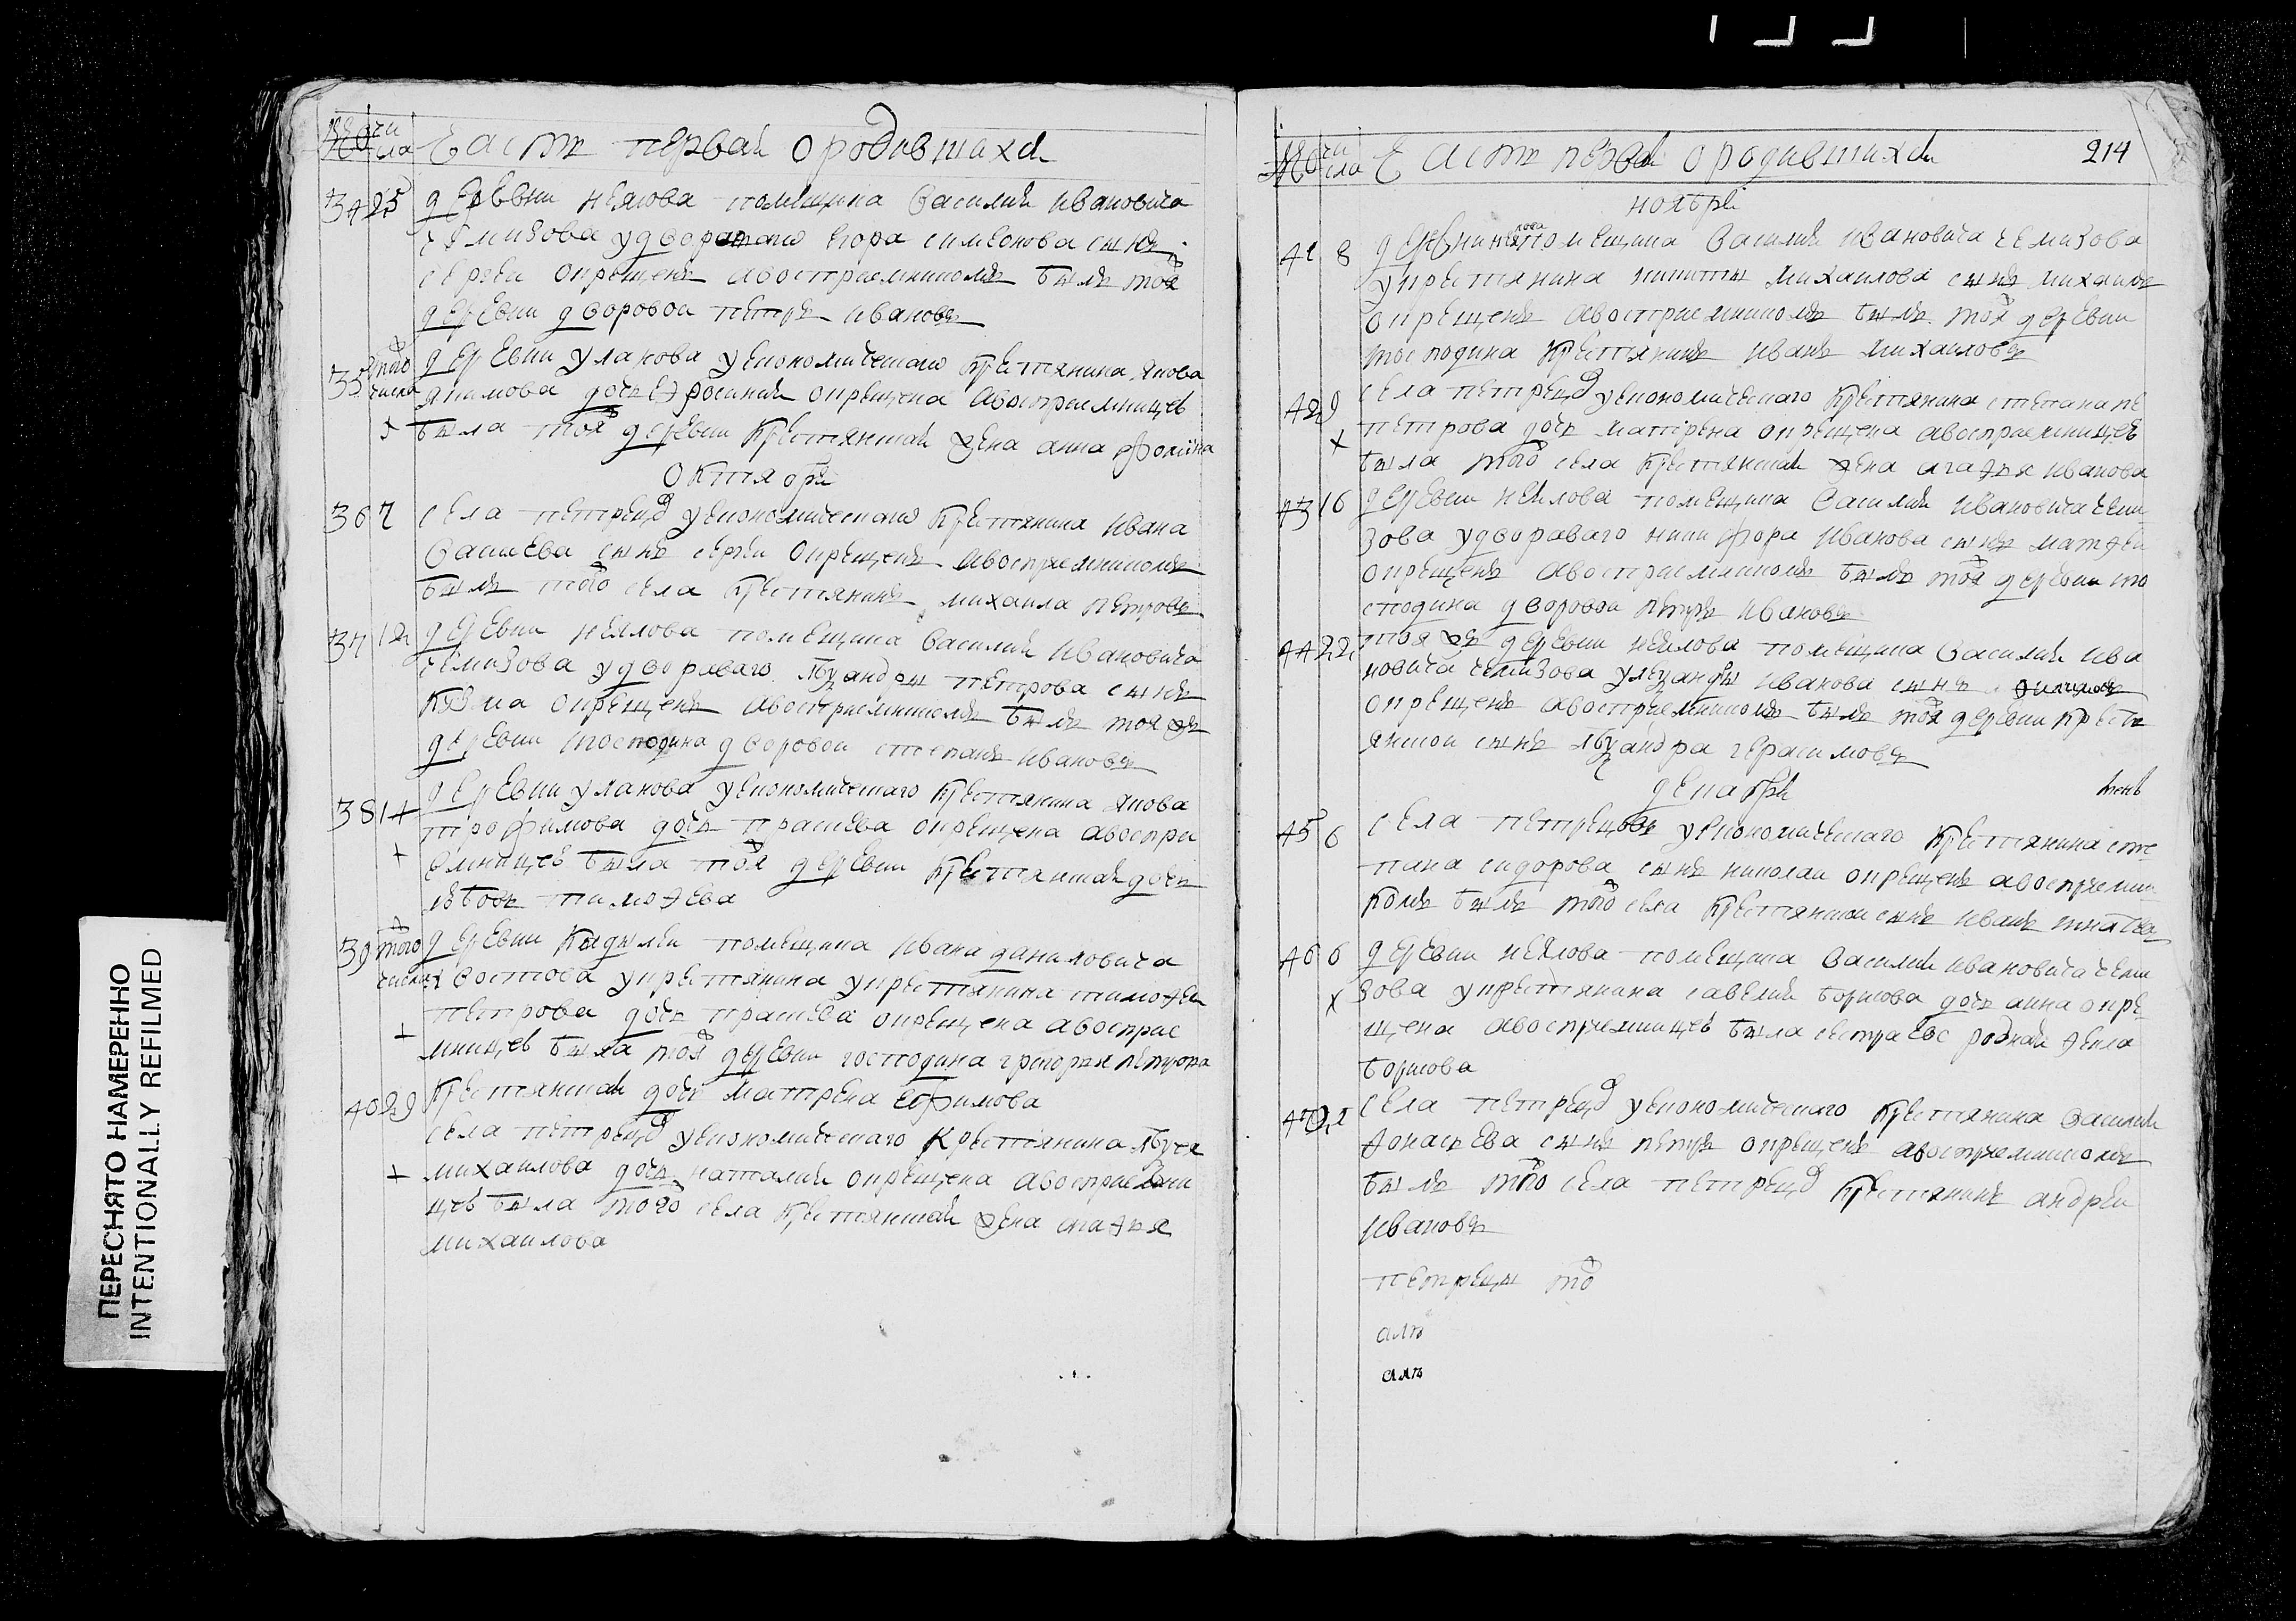 числа Часть первая о родившихся
34 25 деревни неялова помещика василия ивановича
чемизова у двороваго егора симеонова сынъ
сергеи окрещенъ а восприемникомъ былъ тоя
деревни дворовои петръ ивановъ
35 того числа деревни уланова у економическаго крестянина якова
якимова дочь ефросиния окрещена а восприемницею
была тоя деревни крестянская жена анна фомина
октября
36 7 села петрецо у економическаго крестянина ивана
василева сынъ сергеи окрещенъ а восприемникомъ
былъ того села крестянинъ михаила петровъ
37 12 деревни неялова помещика василия ивановича
чемизова у двороваго петрова сынъ
козма окрещенъ а восприемникомъ былъ тоя же
деревни господина дворовои степанъ ивановъ
38 14 деревни уланова у економическаго крестянина якова
трофимова дочь праскева окрещена а воспри
емницею была тоя деревни крестянская дочь
любовь тимоѳева
39 того числа деревни помещика ивана даниловича
хвостова у крестянина у крестянина тимоѳея
петрова дочь праскева окрещена а восприе
мницею была тоя деревни господина григорья петрова
крестянская дочь матрена ефимова
40 29 села петрецо у економическаго крестянина
михаилова дочь наталия окрещена а восприемни
цею была того села крестянская жена агаѳья
михаилова
числа Часть перва о родившихся 214
ноября
41 8 деревни неялова помещика василия ивановича чемизова
у крестянина никиты михаилова сынъ михаилъ
окрещенъ а восприемникомъ былъ тоя деревни
господина крестянинъ иванъ михаиловъ
42 9 села петрецо у економическаго крестянина степана пе
петрова дочь матрена окрещена а восприемницею
была того села крестянская жена агаѳья иванова
43 16 деревни неялова помещика василия ивановича чеми
зова у двораваго никифора иванова сынъ матѳеи
окрещенъ а восприемникомъ былъ тоя деревни го
сподина дворовои петръ ивановъ
44 22 тоя же деревни неялова помещика василия ива
новича чемизова иванова сынъ филипъ
окрещенъ а восприемникомъ былъ тоя деревни кресть
янскои сынъ герасимовъ
декабря
45 6 села петрецовъ у економическаго крестянина сте
пана сидорова сынъ николаи окрещенъ а восприемни
комъ былъ того села крестянскои сынъ иванъ игнатевъ
46 6 деревни неялова помещика василия ивановича чеми
зова у крестянина савелия борисова дочь анна окре
щена а восприемницею была сестра его родная ѳекла
борисова
47 21 села петрецо у економическаго крестянина василия
аѳонасьева сынъ петръ окрещенъ а восприемникомъ
былъ того села петрецо крестянинъ андреи
ивановъ
петрецы то
алъ
алъ
ПЕРЕСНЯТО НАМЕРЕННО
INTENTIONALLY REFILMED